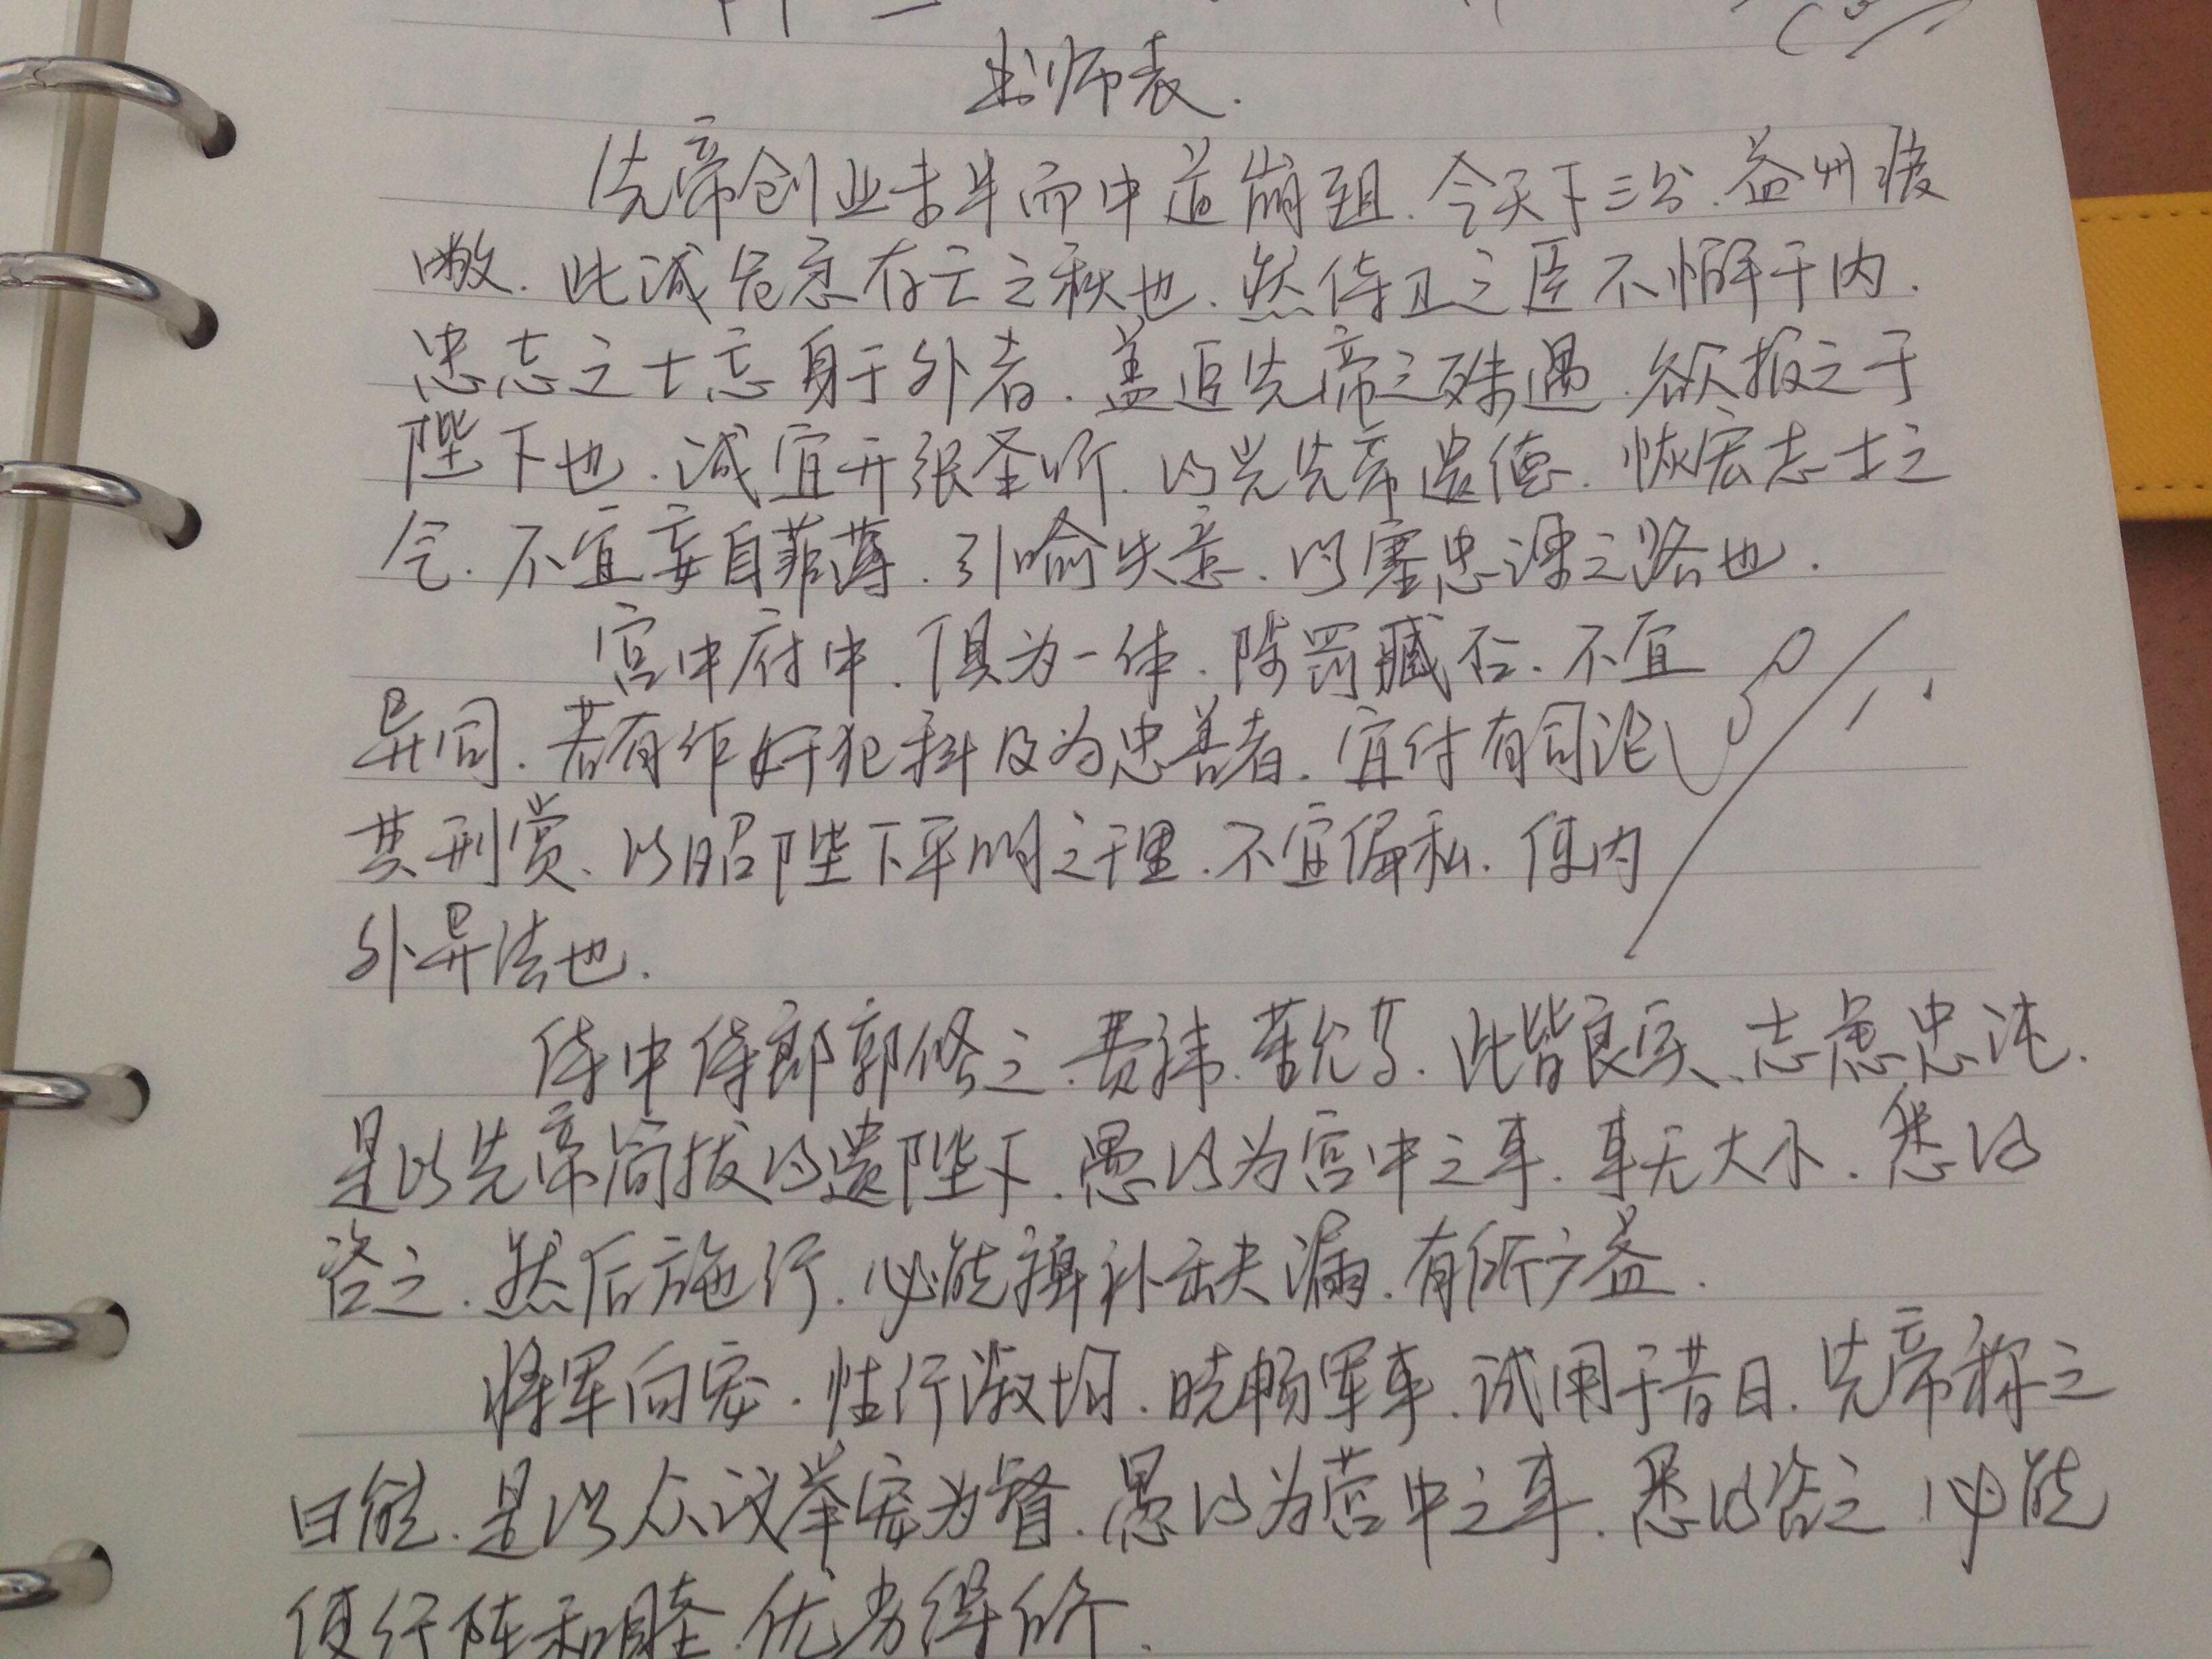 出师表.
先帝创业未半而中道崩殂.今天下三分.益州疲
敝.此诚危急存亡之秋也.然侍卫之臣不懈于内.
忠志之士忘身于外者.盖追先帝之殊遇.欲报之于
陛下也.诚宜开张圣听.以光先帝遗德.恢宏志士之
气.不宜妄自菲薄.引喻失意.以塞忠谏之路也.
宫中府中.俱为一体.陟罚臧否.不宜
异同.若有作奸犯科及为忠善者.宜付有司论
其刑赏.以昭陛下平明之理.不宜偏私.使内
外异法也.
侍中侍郎郭攸之.费祎.董允等.此皆良实、志虑忠纯.
是以先帝简拔以遗陛下.愚以为宫中之事.事无大小.悉以
咨之.然后施行.必能裨补缺漏.有所广益.
将军向宠.性行淑均.晓畅军事.试用于昔日.先帝称之
曰能.是以众议举宠为督.愚以为营中之事.悉以咨之.必能
使行阵和睦.优劣得所.